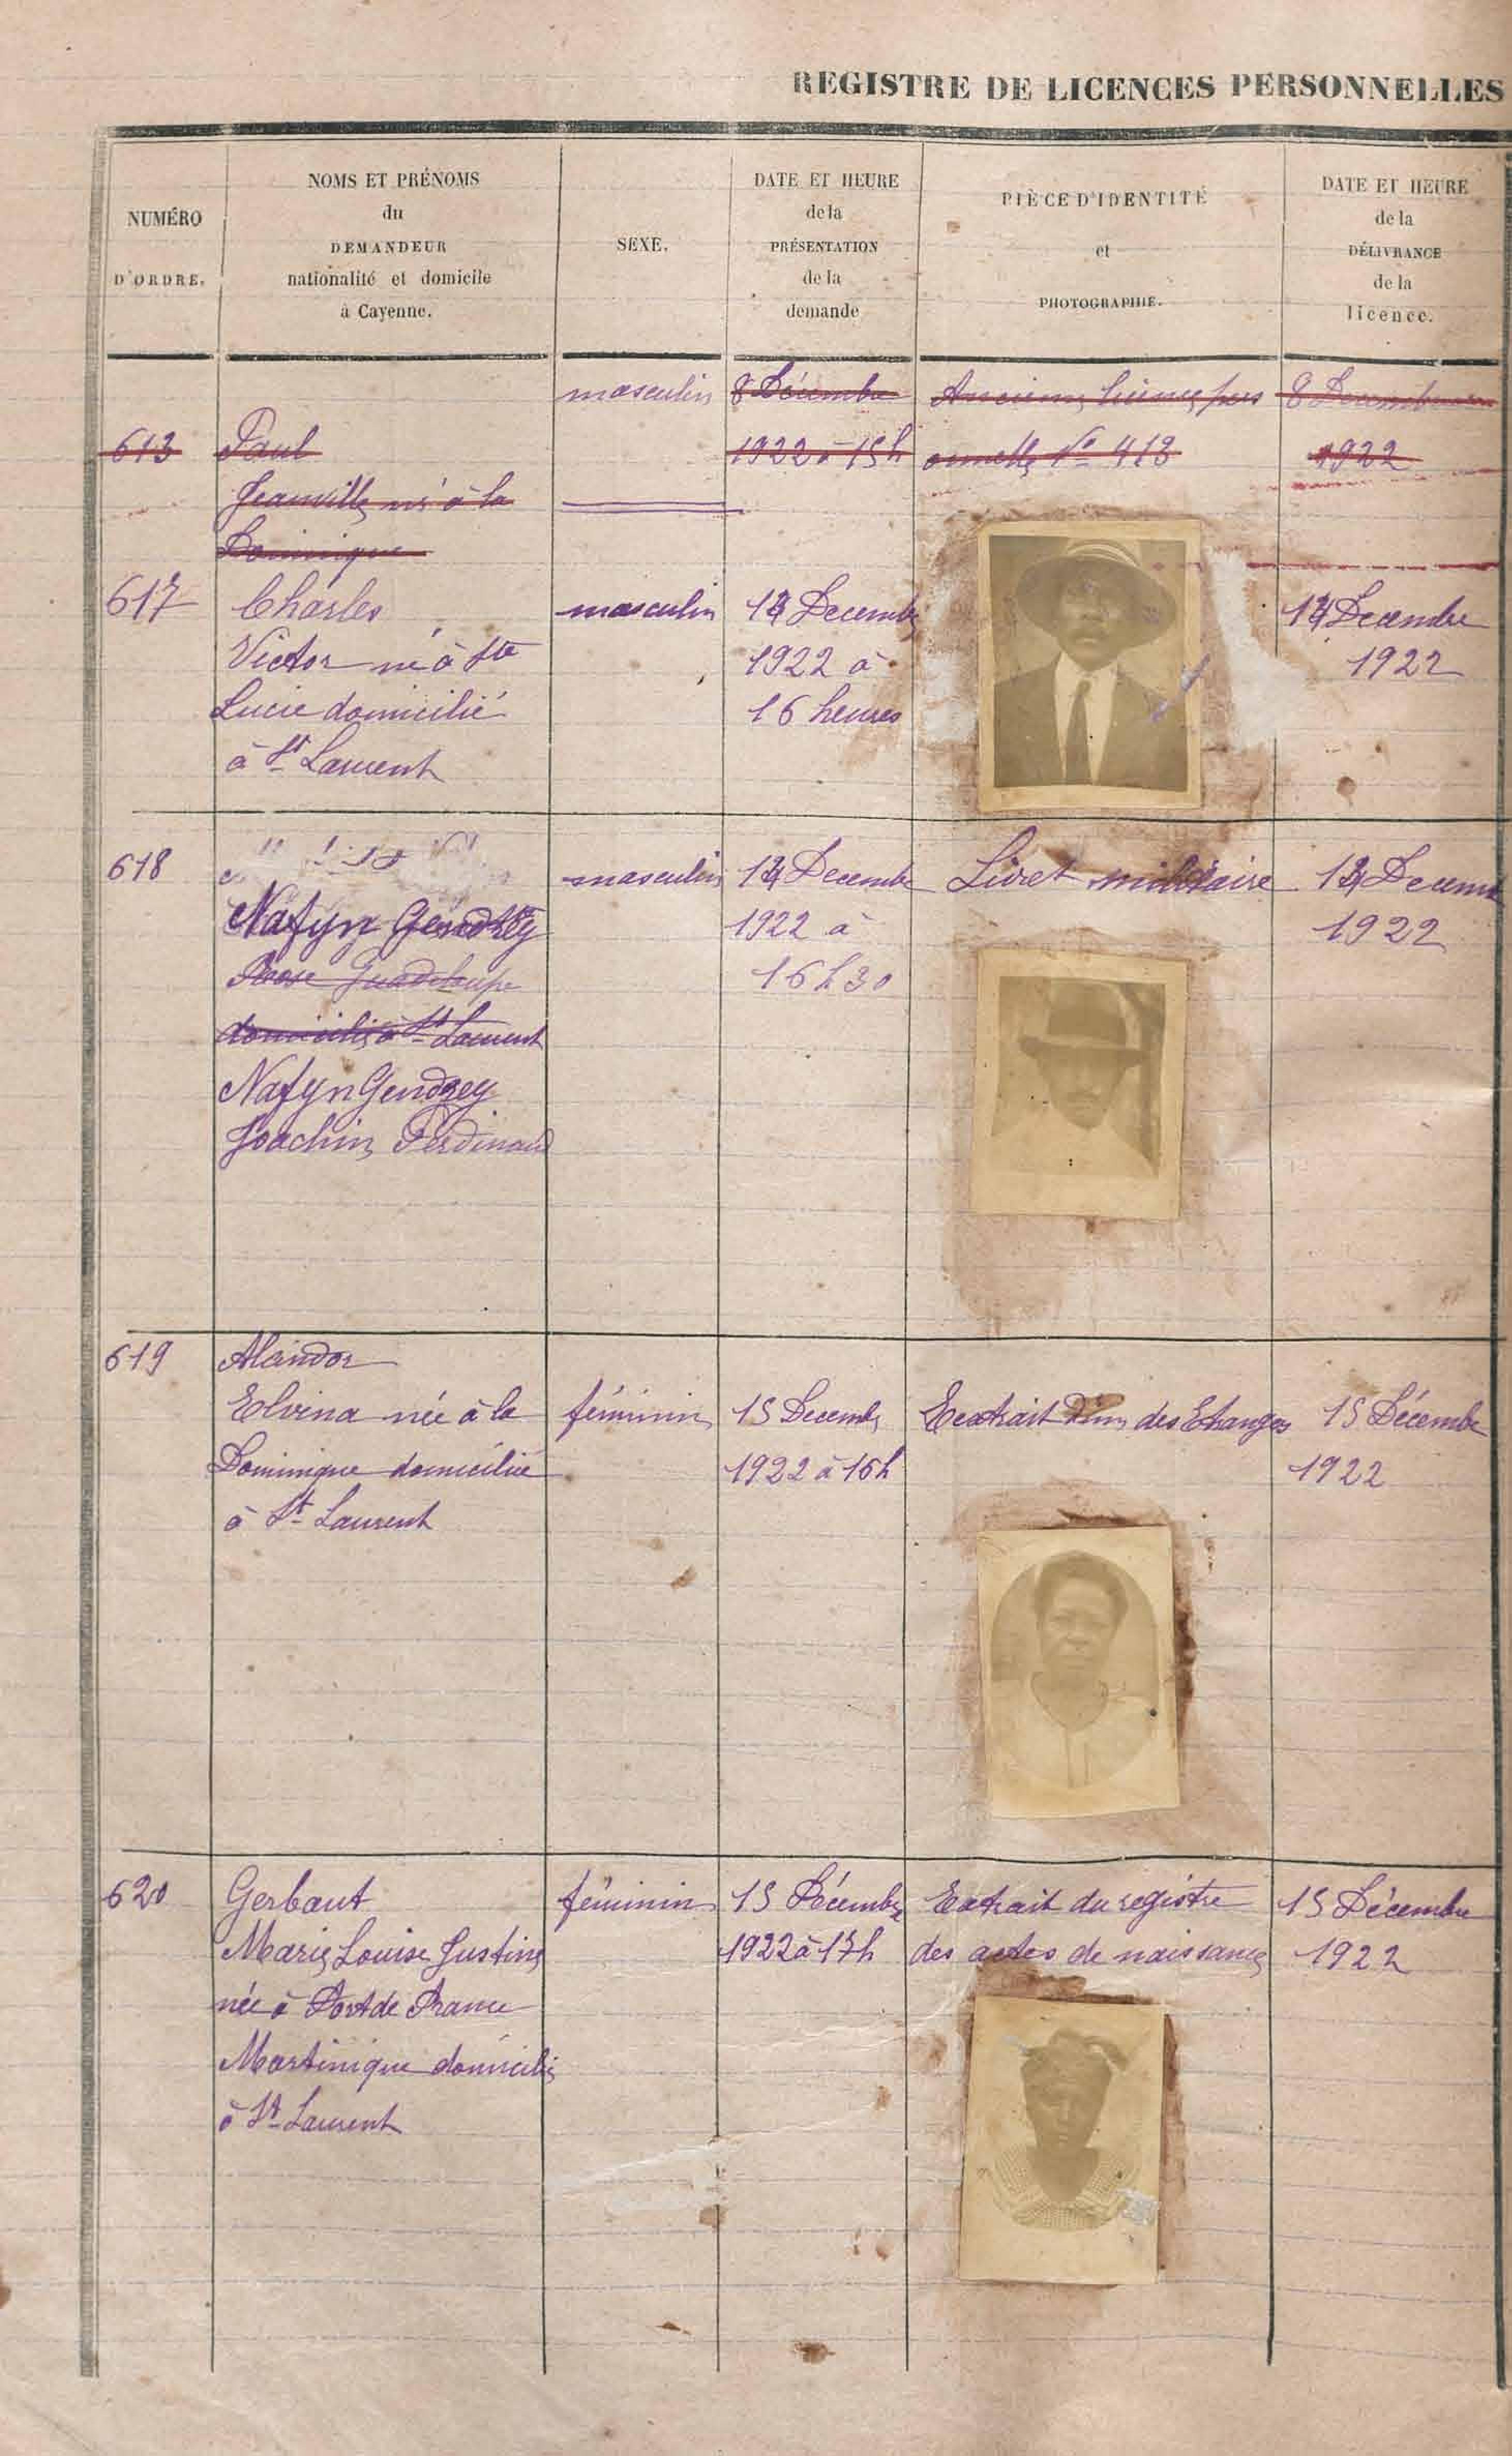 REGISTRE DE LICENCES PERSONNELLES
NUMÉRO
D'ORDRE.
NOMS ET PRÉNOMS
du
DEMANDEUR
nationalité et domicile
à Cayenne.
SEXE.
DATE ET HEURE
de la
PRÉSENTATION
de la
demande
PIÈCE D'IDENTITÉ
et
PHOTOGRAPHIE.
DATE ET HEURE
de la
DÉLIVRANCE
de la
licence.
613
Paul
Jeanville né à la
Dominique
masculin
8 Décembre
1922 à 15h
Ancienne licence pers
onnelle No 418
8 Decembre
1922
617
Charles
Victor né à Ste
Lucie domicilié
à St Laurent
masculin
14 Decembre
1922 à
16 heures
14 Decembre
1922
618
Nafyn Gendrey
Basse Guadeloupe
domicilié à St Laurent
Nafyn Gendrey
Joachim Ferdinand
masculin
14 Decembre
1922 à
16 h 30
Livret militaire
14 Decemb
1922
619
Alaindor
Elvina née à la
Dominique domiciliée
à St Laurent
féminin
15 Decembre
1922 à 16h
Extrait d'im des Etrangers
15 Décembre
1922
620
Gerbaut
Marie Louise Justine
née à Fort de France
Martinique domicilié
à St Laurent
féminin
15 Décembre
1922 à 17h
Extrait du registre
des actes de naissance
15 Décembre
1922